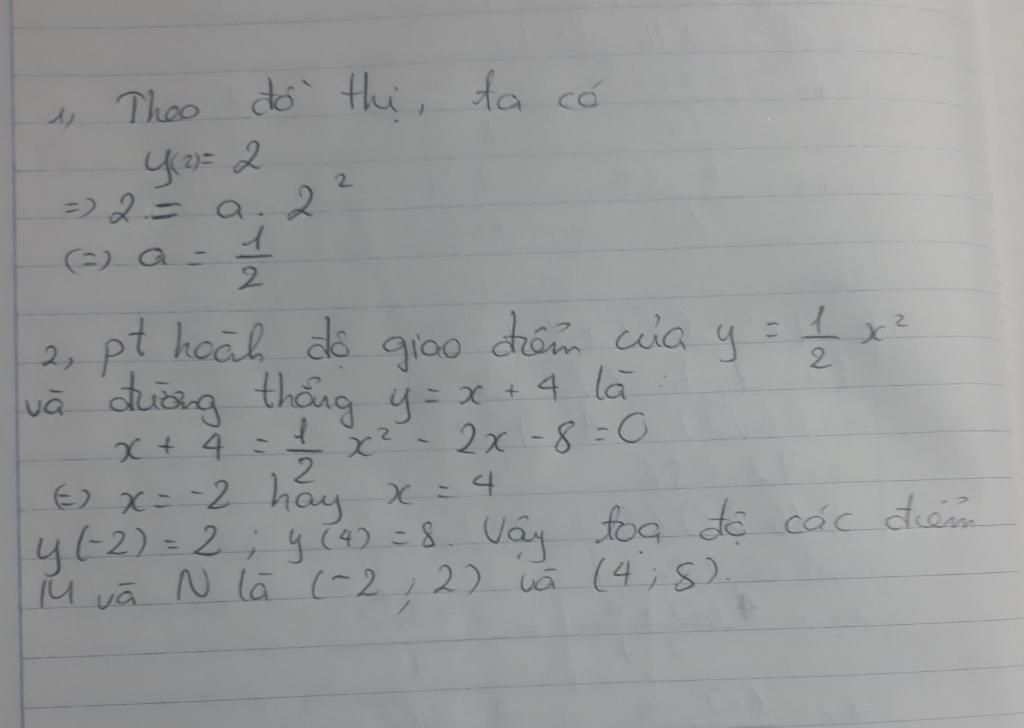 1, Theo đồ thị, ta có
y(2) = 2
=> 2 = a. 2²
(=) a = 1/2
2, pt hoành độ giao điểm của y = 1/2 x²
và đường thẳng y = x + 4 là :
x + 4 = 1/2 x² - 2x - 8 = 0
(=) x = -2 hay x = 4
y(-2) = 2 ; y(4) = 8. Vậy toạ độ các điểm
M và N là (-2 ; 2) và (4 ; 8).